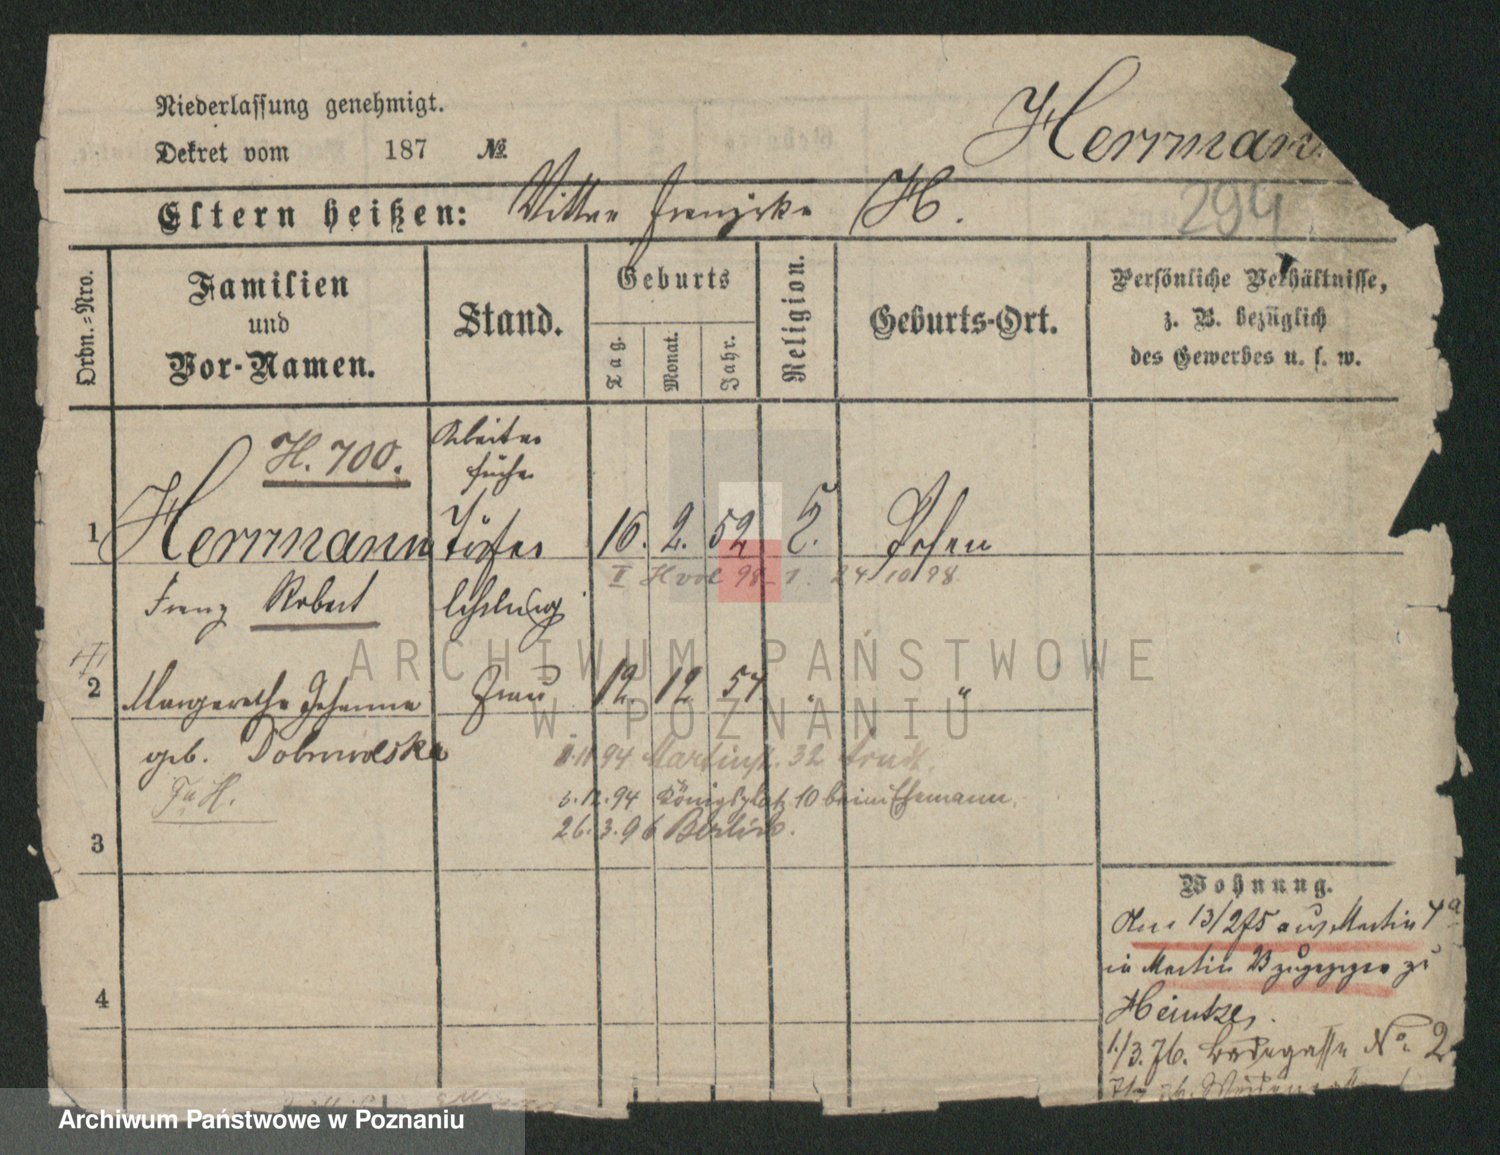 Niederlassung genehmigt.
Herrmann
Dekret vom 187 №.
Eltern heißen: Franziska H.
294
Ordn.-Nro.
Familien
und
Vor-Namen.
Stand.
Geburts
Tag.
Monat.
Jahr.
Religion.
Geburts-Ort.
Persönliche Verhältnisse,
z. B. bezüglich
des Gewerbes u. s. w.
H. 700.
Arbeiter
1 Herrmann Töpfer 16. 2. 52 Posen
98 24 10 98
Franz Robert lehrling
2 Margarethe Johanna Frau 12. 12 57 " "
geb. Dobrowolska
11.94 Martinstr. 32 Arndt.
Fr. H.
3.12.94 Königsplatz 10 beim Ehemann.
26.3.96 Berlin.
3
4
Wohnung.
13/2 75 aus Martin 4a
in Martin 23 zugezogen zu
Heintze,
1./3.76. Badegasse No. 2
ARCHIWUM PAŃSTWOWE
W POZNANIU
Archiwum Państwowe w Poznaniu